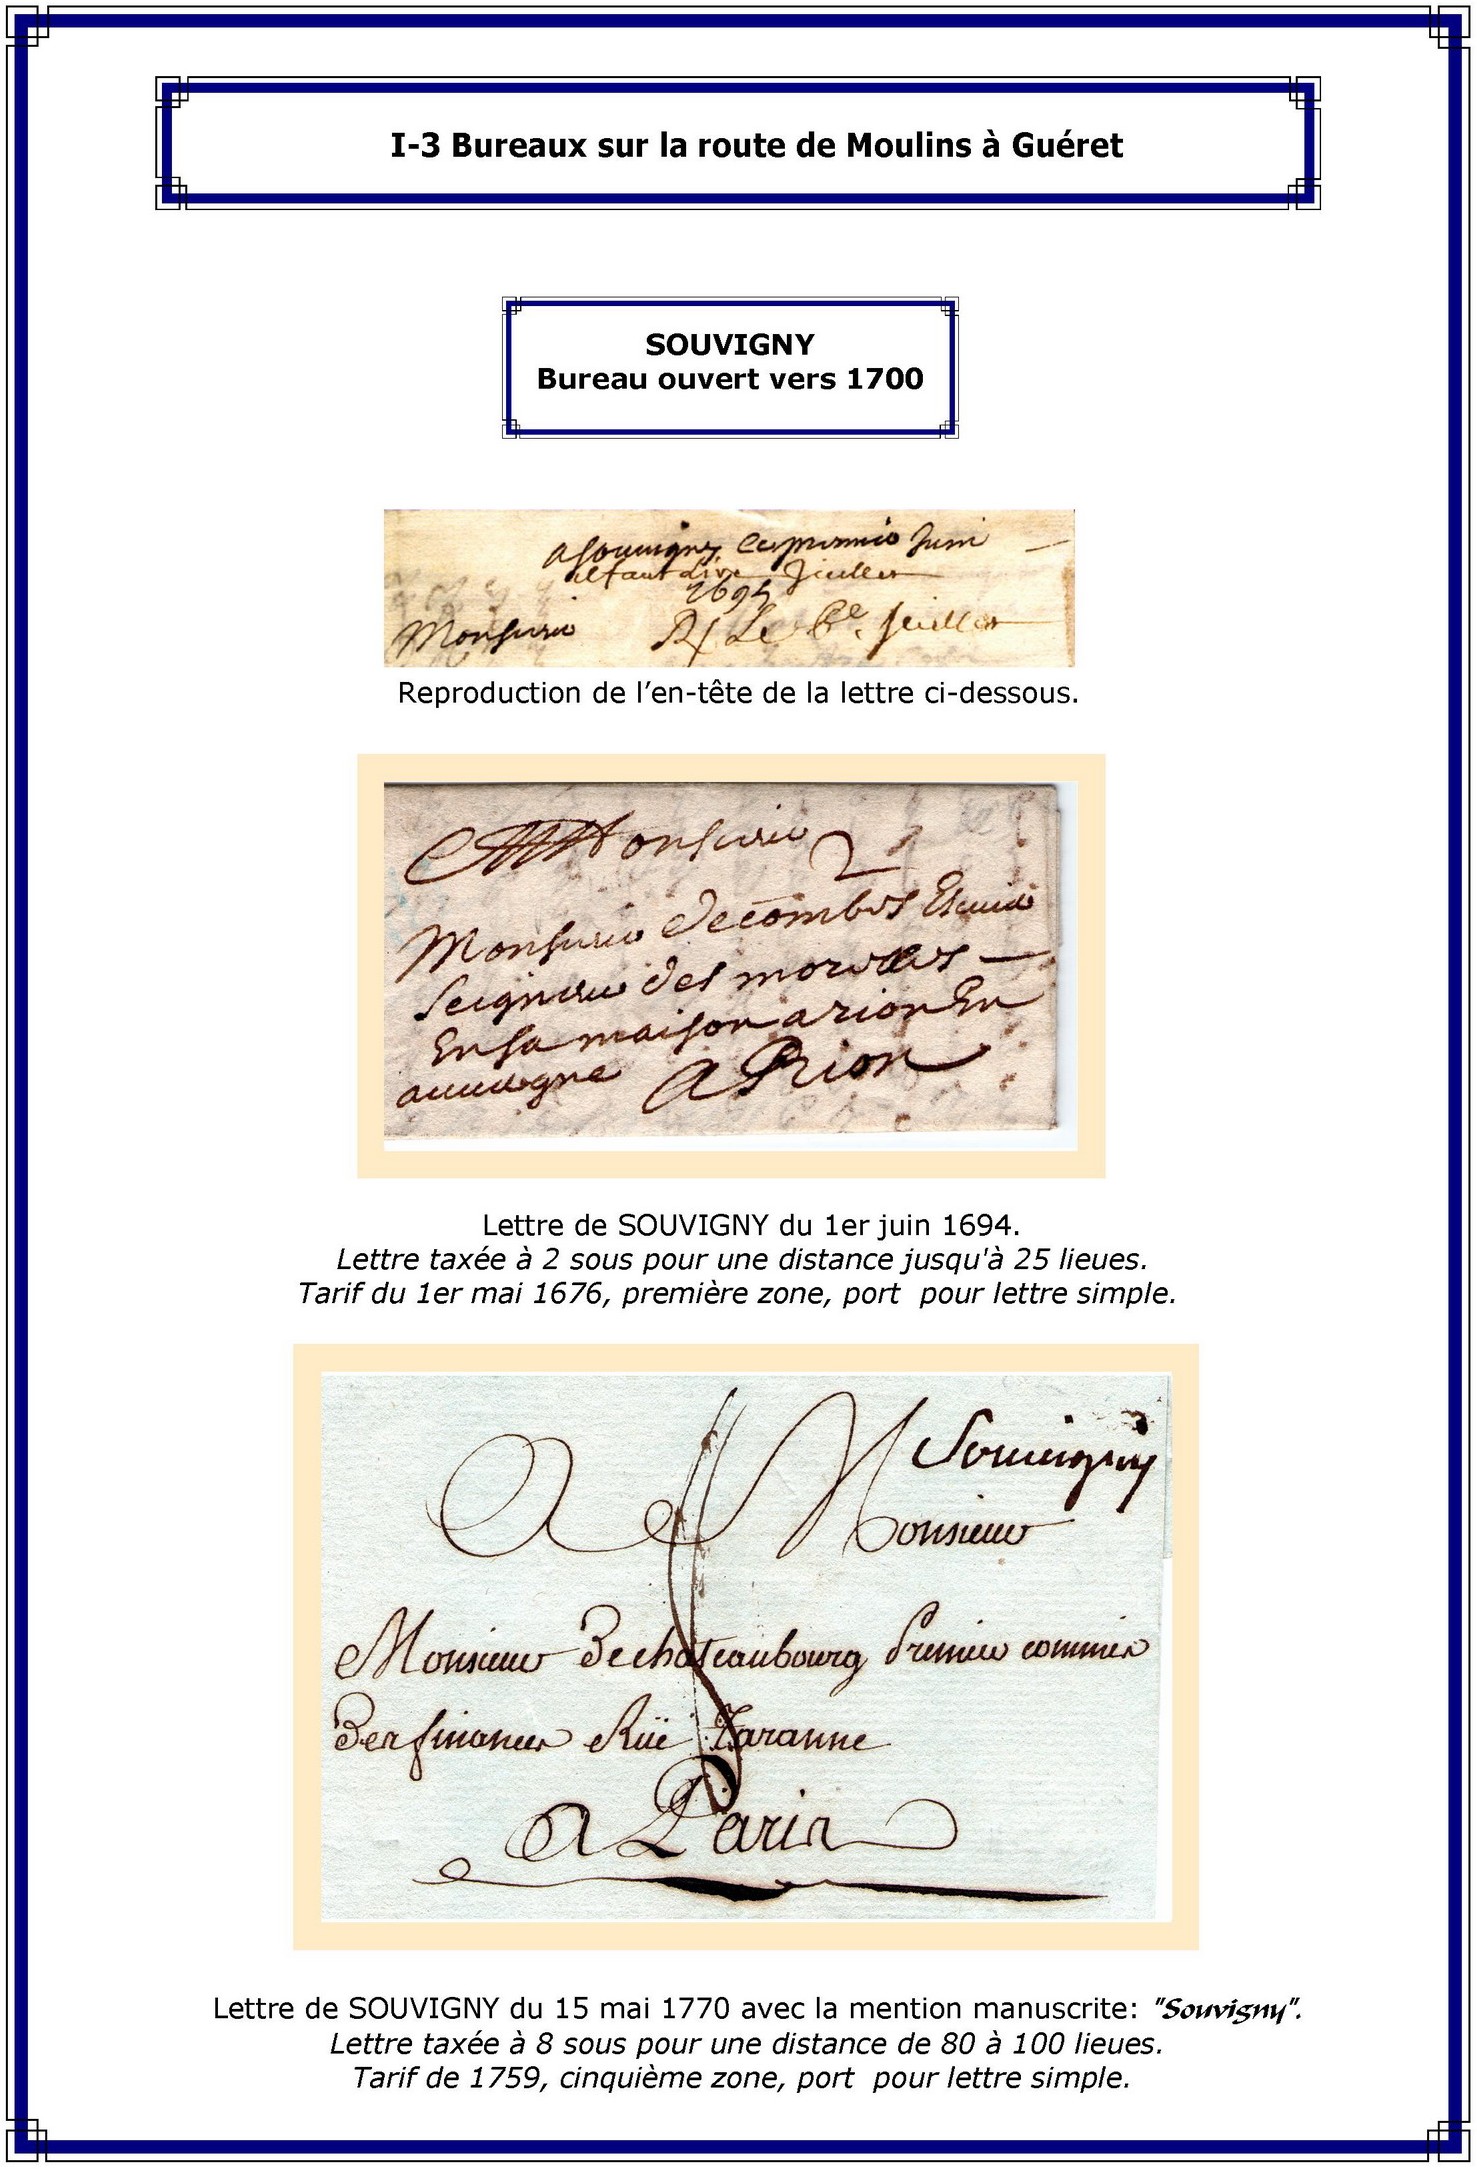 I-3 Bureaux sur la route de Moulins à Guéret
SOUVIGNY
Bureau ouvert vers 1700
a Souuigny le premie Juin
il faut lire Jeullet
1694
Monsieur R/ Le 6e. Jeullet
Reproduction de l’en-tête de la lettre ci-dessous.
Monsieur 2
Monsieur decombes Escuier
Seigneur des morelles
En sa maison a rion En
auuergne a Rion
Lettre de SOUVIGNY du 1er juin 1694.
Lettre taxée à 2 sous pour une distance jusqu'à 25 lieues.
Tarif du 1er mai 1676, première zone, port pour lettre simple.
Souuigny
A Monsieur
8
Monsieur Dechateaubourg Premier commis
Des finances Rüe Taranne
A Paris
Lettre de SOUVIGNY du 15 mai 1770 avec la mention manuscrite: "Souvigny".
Lettre taxée à 8 sous pour une distance de 80 à 100 lieues.
Tarif de 1759, cinquième zone, port pour lettre simple.